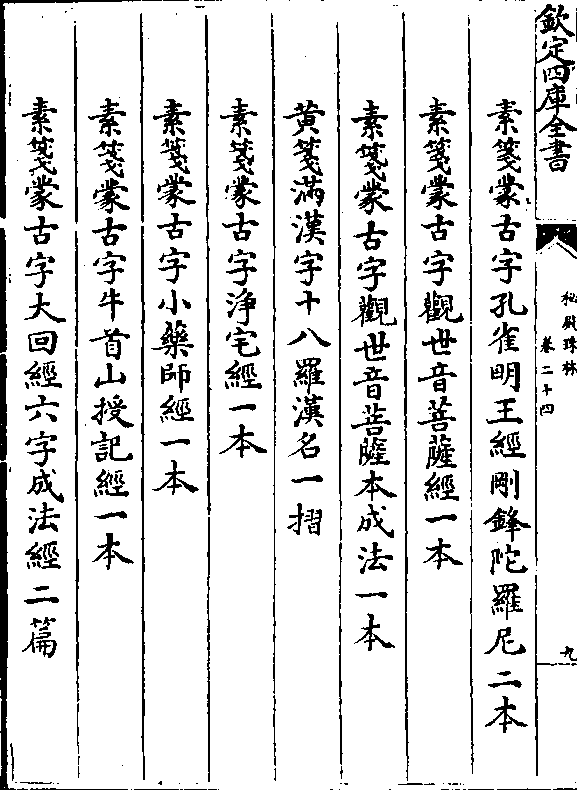 欽定四庫全書
秘殿珠林
卷二十四
九
素箋蒙古字孔雀明王經剛鋒陀羅尼二本
素箋蒙古字觀世音菩薩經一本
素箋蒙古字觀世音菩薩本成法一本
黄箋滿漢字十八羅漢名一摺
素箋蒙古字淨宅經一本
素箋蒙古字小藥師經一本
素箋蒙古字牛首山授記經一本
素箋蒙古字大回經六字成法經二篇